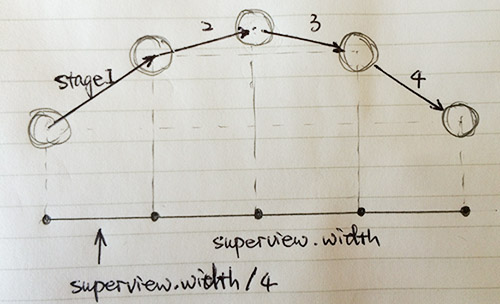 stage1
2
3
4
superview.width
superview.width/4